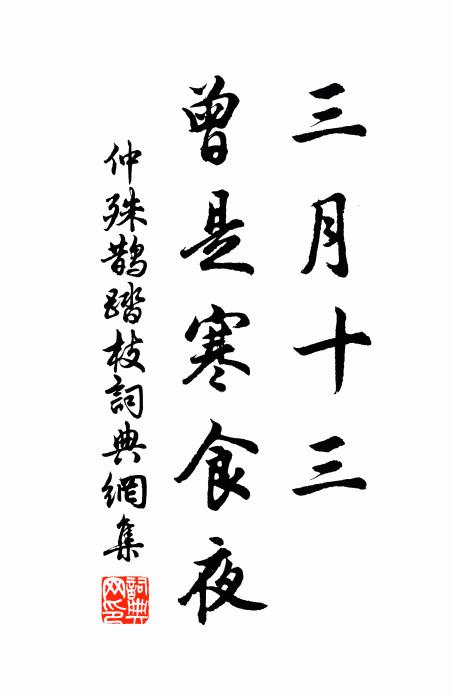 三月十三
曾是寒食夜
仲殊鵲踏枝詞典網集
詞典网印